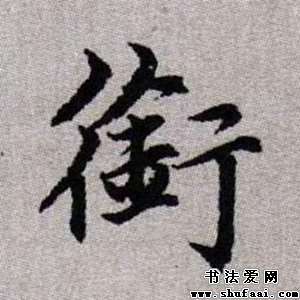 銜
书法爱网
www.shufaai.com